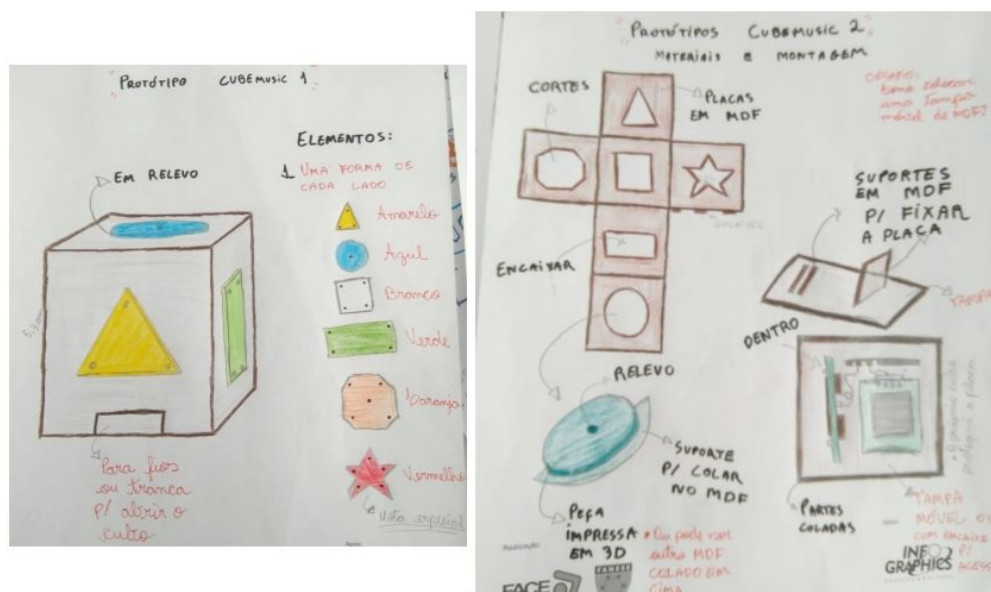 PROTÓTIPO CUBEMUSIC 1
EM RELEVO
ELEMENTOS:
1 UMA FORMA DE
CADA LADO
Amarelo
Azul
Branco
Verde
Laranja
Vermelho
Nota especial
Para fios
ou tranca
p/ abrir o
cubo
PROTÓTIPOS CUBEMUSIC 2
MATERIAIS E MONTAGEM
CORTES
PLACAS
EM MDF
DESAFIO:
como colocar
uma tampa
móvel de MDF?
ENCAIXES
ENCAIXAR
SUPORTES
EM MDF
P/ FIXAR
A PLACA
TAMPA
DENTRO
RELEVO
SUPORTE
P/ COLAR
NO MDF
PEÇA
IMPRESSA
EM 3D
Ou pode ser
outro MDF
COLADO EM
CIMA
PARTES
COLADAS
TAMPA
MÓVEL OU
COM ENCAIXE
P/
ACESS
Realização:
FACE
INFO
GRAPHICS